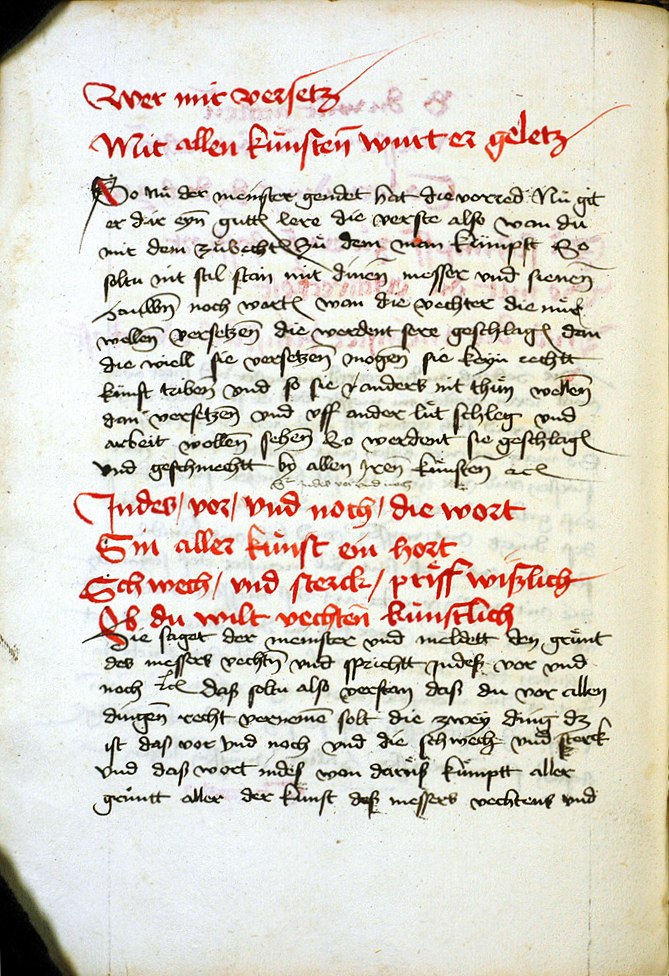 Wer mit versetz
Mit allen künsten̄ wurt er geletz
So nū der meinster gendet hat die vorred Nū git
er dir eyn̄ gutt lere die verste also wan du
mit dem zuvechten zu dem man kümpst So
soltu nit stil stan mit dinen̄ messer und sienen̄
noch warten wan die vechter die nür
wellen̄ versetzen̄ die werdent sere geschlagen dan
die wiell sie versetzen̄ mogen̄ sie keyn rechtt
künst triben̄ vnd so sie anders nit thün wellen̄
dan versetzen̄ vnd vff ander lüt schleg vnd
arbeit wollen̄ sehen̄ So werdent sie geschlagen
vnd geschmechtt by allen Jren̄ künsten̄ etc
Indes vor vnd noch
Indes / vor / vnd noch / die wort
Sin aller künst ein hort
Schwech / vnd sterck / priff wißlich
Ob du wilt vechten̄ künstlich
Hie saget der meinster vnd meldett den grünt
des messers vechtn̄ vnd sprichtt Jndeß vor vnd
noch etc daß soltu also verstan daß du vor allen
dingen̄ recht vernemē solt die zwey ding dz
ist daß vor vnd noch vnd die schwech vnd sterck
vnd daß wort indeß won daruß kümptt aller
grüntt aller der künst deß messers vechtens vnd